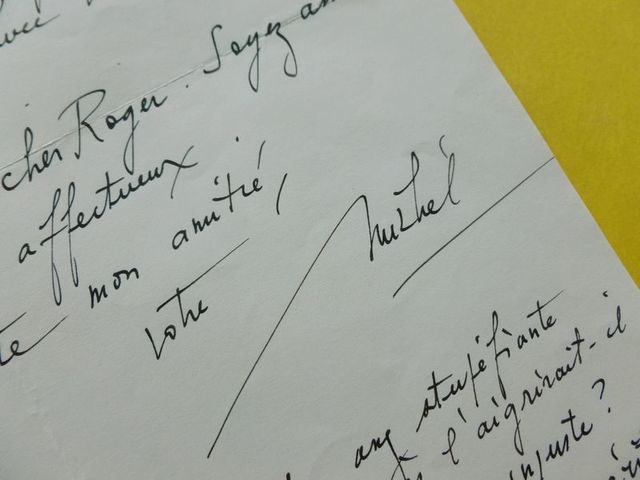 cher Roger. Soyez
affectueux
mon amitié,
votre
Michel
stupéfiante
l'aigrirait-il
injuste?